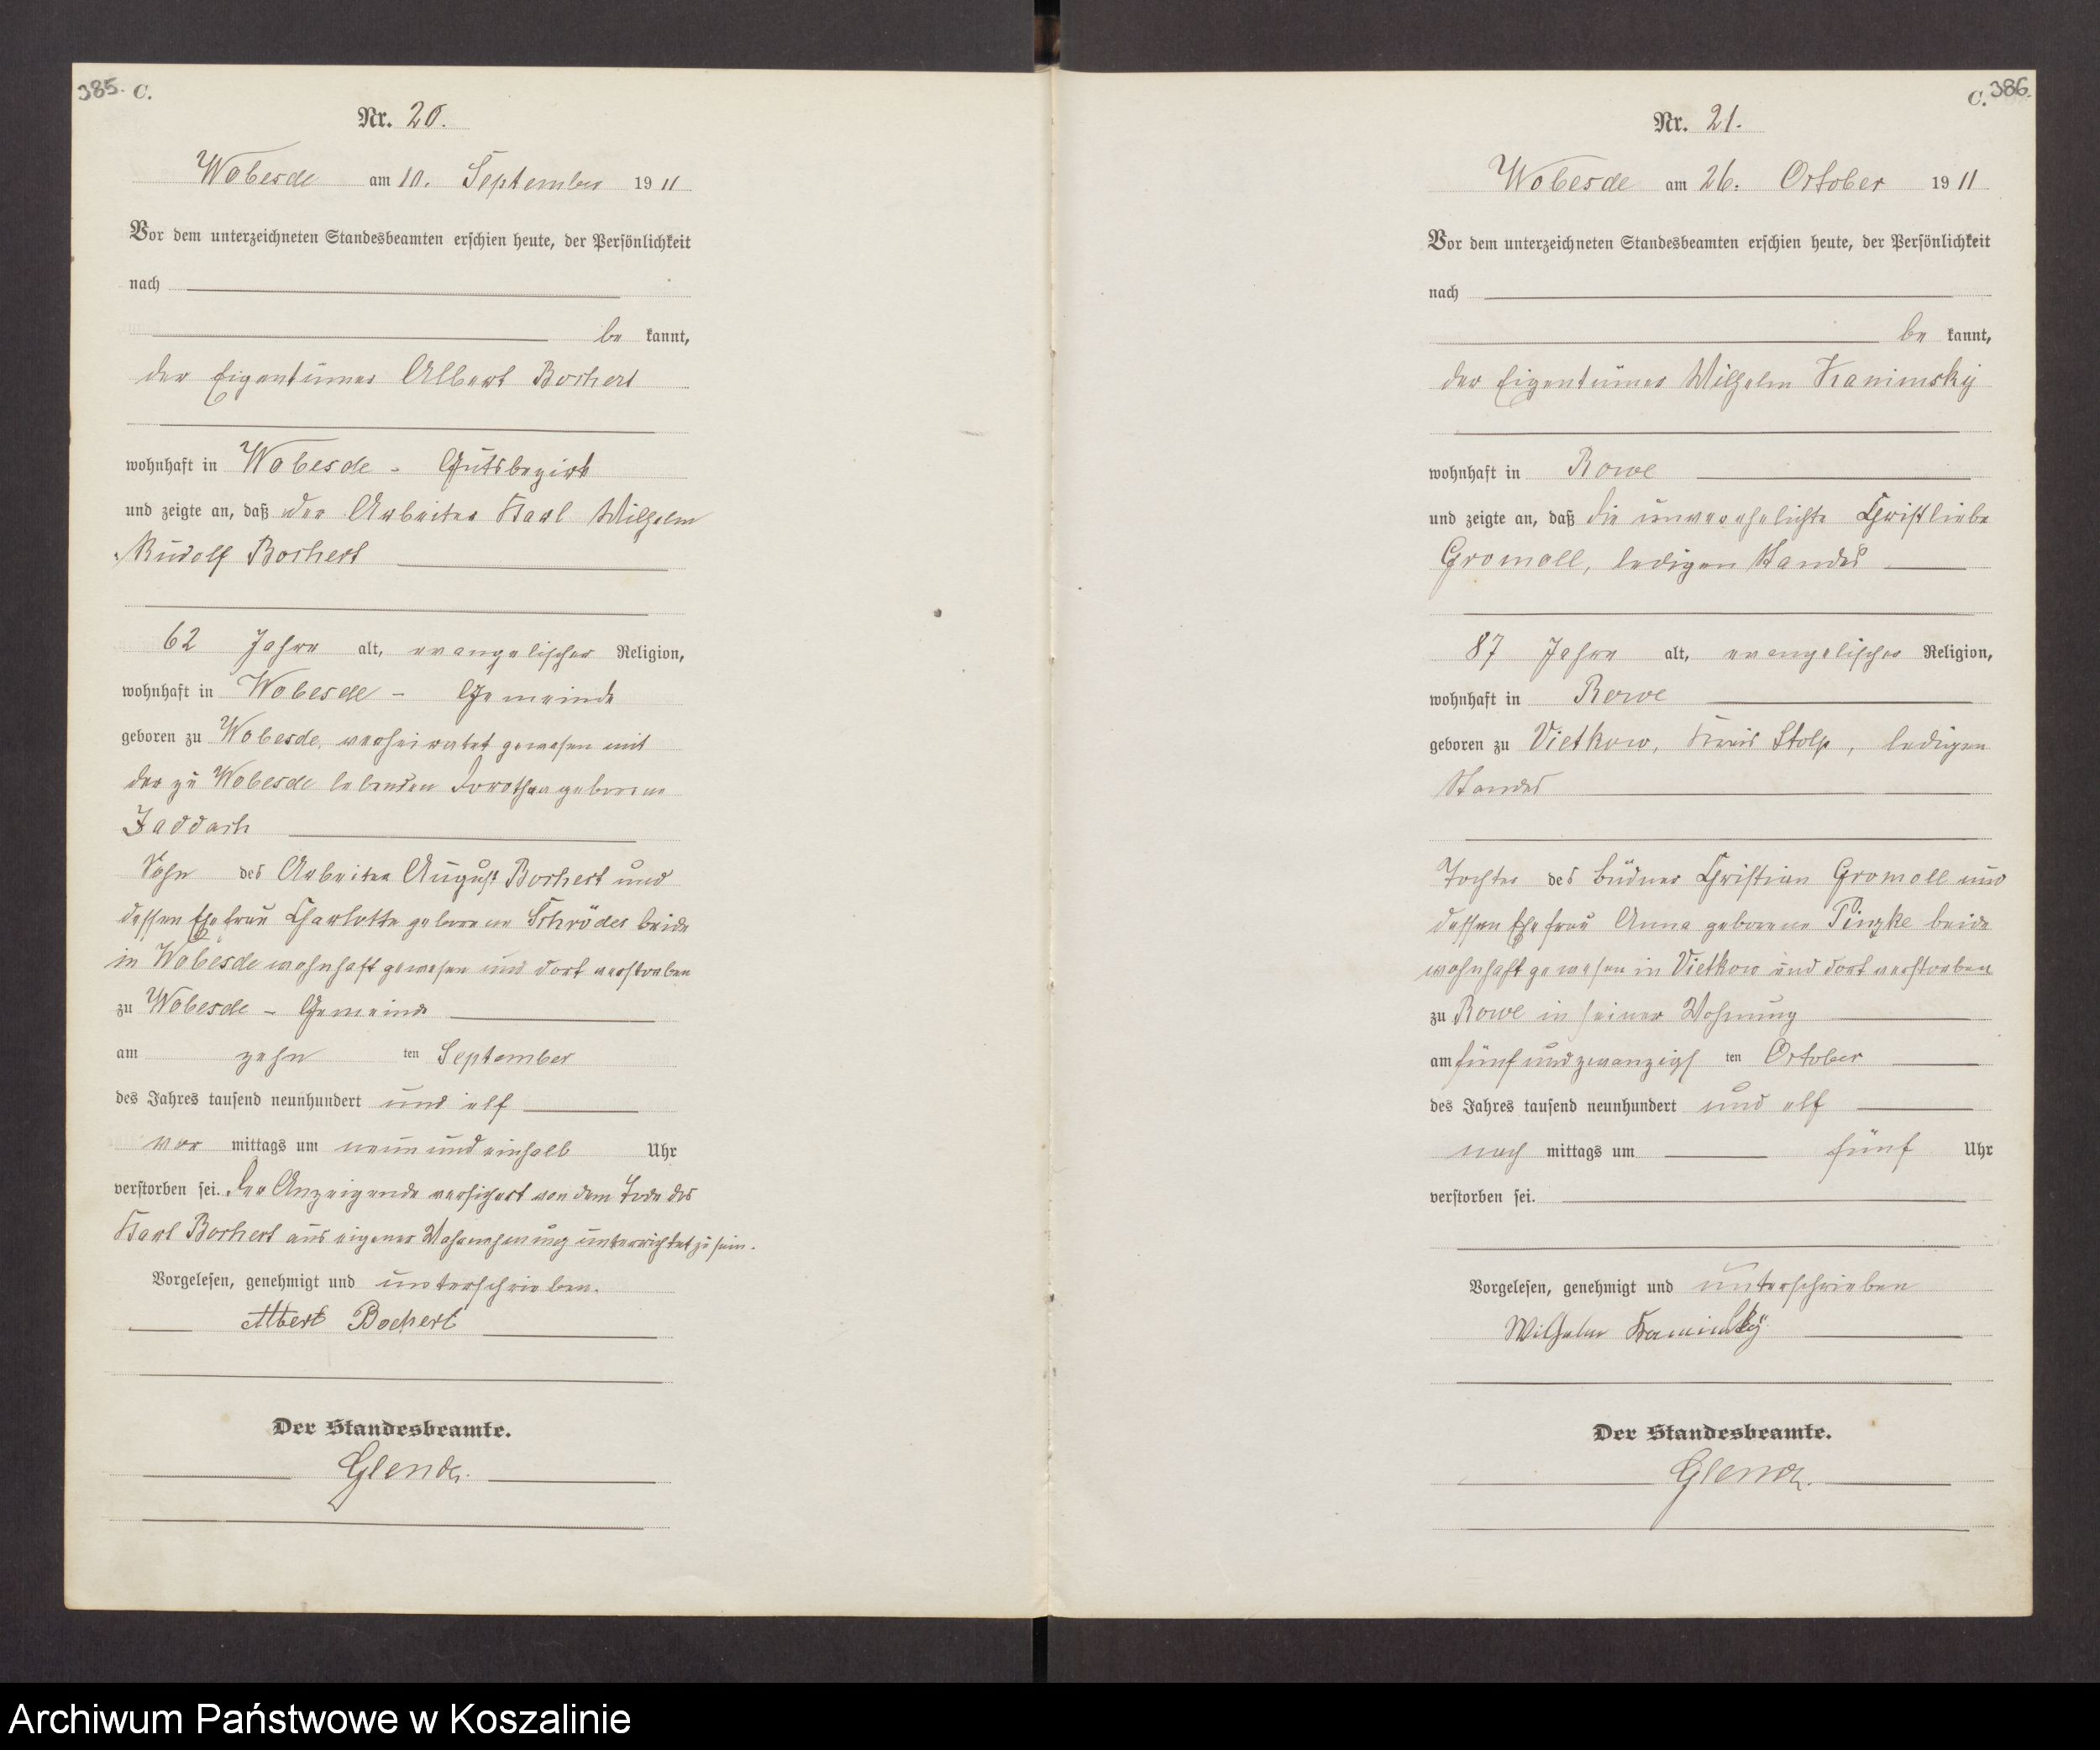 385. C.
Nr. 20.
Wobesde am 10. September 1911
Vor dem unterzeichneten Standesbeamten erschien heute, der Persönlichkeit
nach
be kannt,
der Eigentümer Albert Bochert
wohnhaft in Wobesde - Gutsbezirk
und zeigte an, daß der Arbeiter Karl Wilhelm
Rudolf Bochert
62 Jahre alt, evangelischer Religion,
wohnhaft in Wobesde - Gemeinde
geboren zu Wobesde, verheiratet gewesen mit
der zu Wobesde lebenden Dorothea geborene
Jaddach
Sohn des Arbeiter August Bochert und
dessen Ehefrau Charlotte geborene Schröder beide
in Wobesde wohnhaft gewesen und dort verstorben
zu Wobesde - Gemeinde
am zehn ten September
des Jahres tausend neunhundert und elf
vor mittags um neun und einhalb Uhr
verstorben sei. Der Anzeigende versichert von dem Tode des
Karl Bochert aus eigener Wahrnehmung unterrichtet zu sein.
Vorgelesen, genehmigt und unterschrieben.
Albert Bochert
Der Standesbeamte.
C. 386.
Nr. 21.
Wobesde am 26. October 1911
Vor dem unterzeichneten Standesbeamten erschien heute, der Persönlichkeit
nach
be kannt,
der Eigentümer Wilhelm Kaminsky
wohnhaft in Rowe
und zeigte an, daß die unverehelichte Christliebe
Gromoll, ledigen Standes
87 Jahre alt, evangelischer Religion,
wohnhaft in Rowe
geboren zu Vietkow, Kreis Stolp, ledigen
Standes
Tochter des Büdner Christian Gromoll und
dessen Ehefrau Anna geborene Pinzke beide
wohnhaft gewesen in Vietkow und dort verstorben
zu Rowe in seiner Wohnung
am fünf und zwanzigs ten October
des Jahres tausend neunhundert und elf
nach mittags um fünf Uhr
verstorben sei.
Vorgelesen, genehmigt und unterschrieben
Wilhelm Kaminsky
Der Standesbeamte.
Archiwum Państwowe w Koszalinie